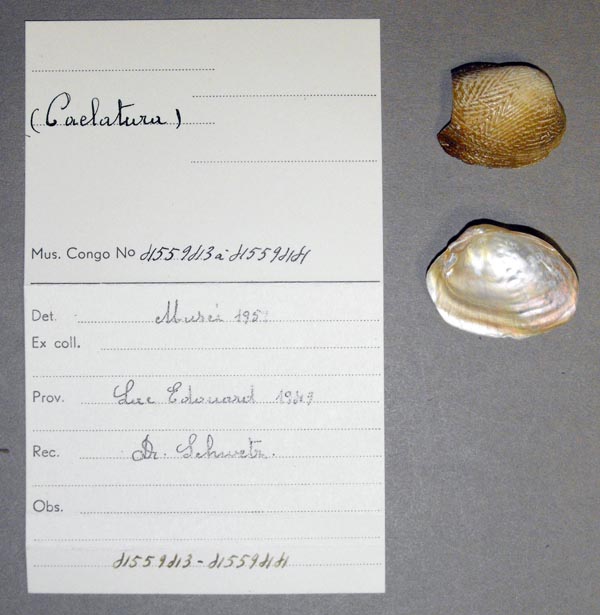 (Caelatura)
Mus. Congo No 4155943 à 4155944
Det. Musei
Ex coll.
Prov. Lac Edouard 1949
Rec. Dr. Schwetz.
Obs.
4155943 - 4155944